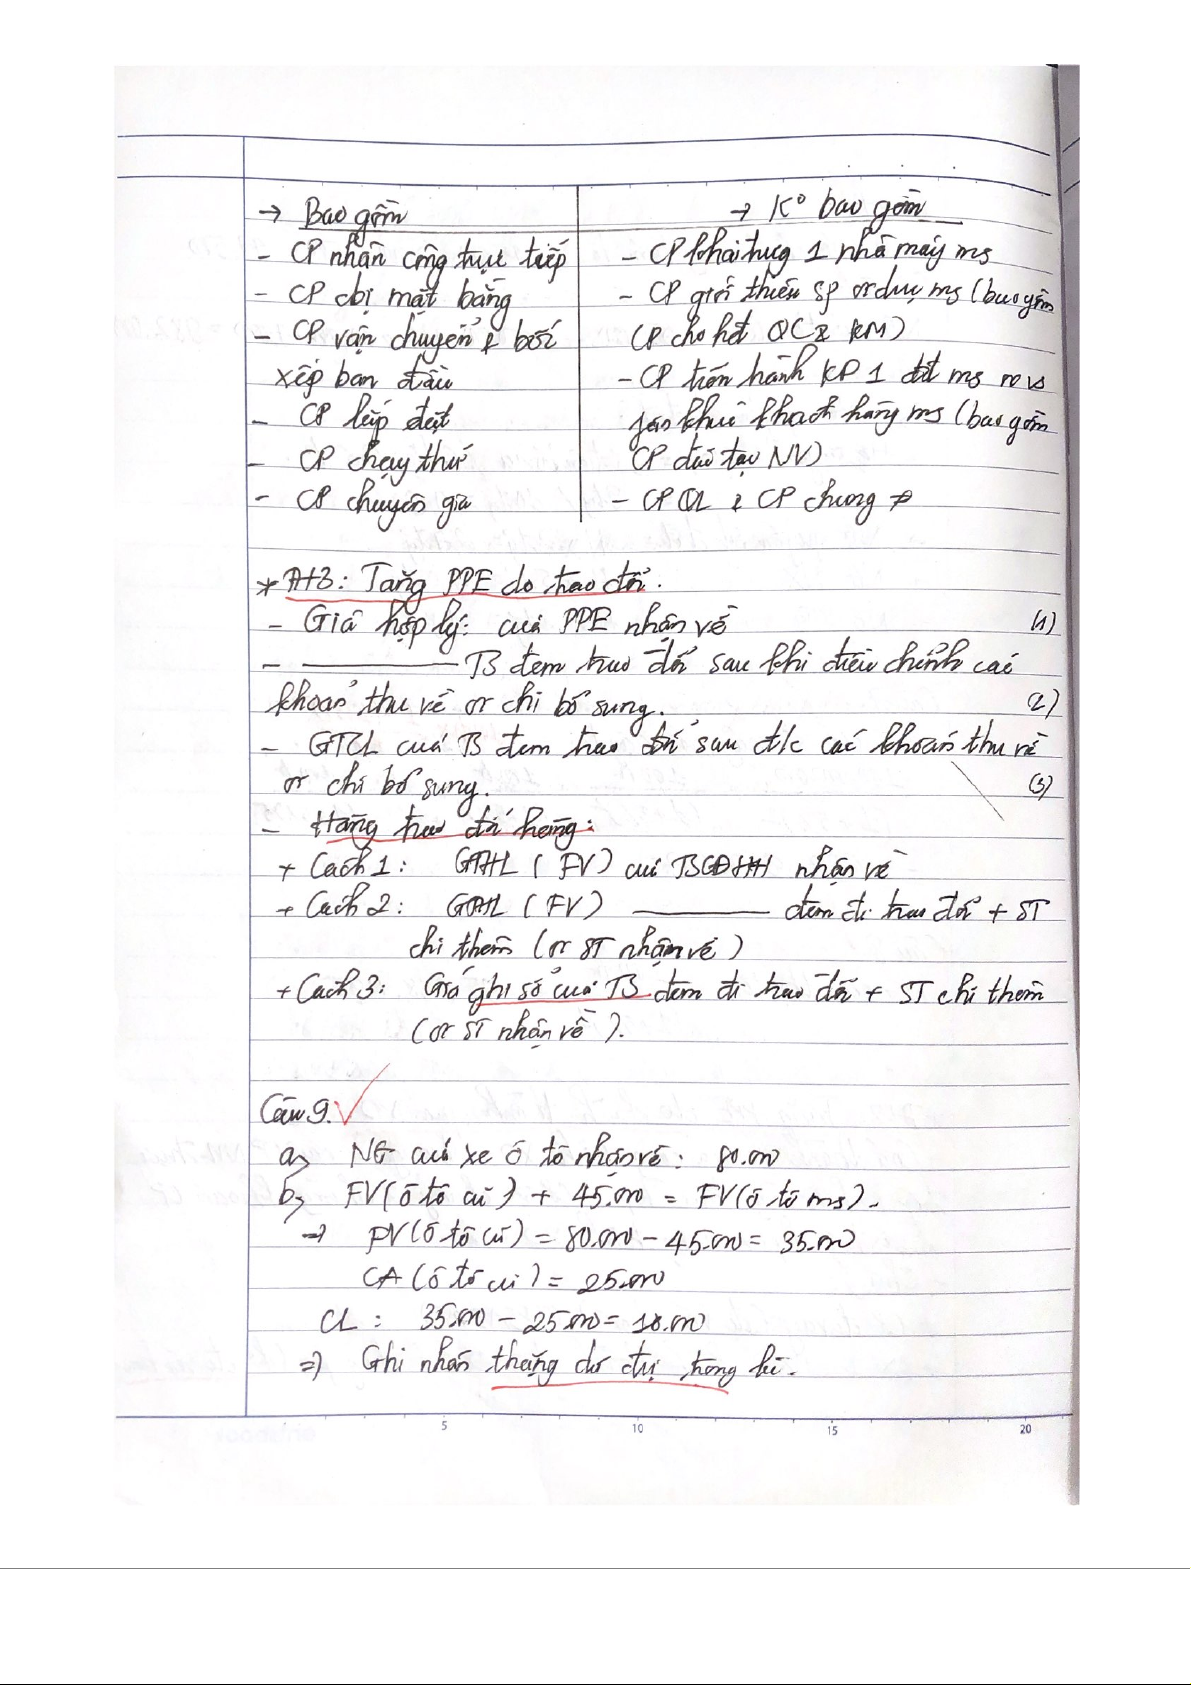 → Bao gồm
- CP nhân công trực tiếp
- CP cbị mặt bằng
- CP vận chuyển & bốc
xếp ban đầu
- CP lắp đặt
- CP chạy thử
- CP chuyên gia
→ K° bao gồm
- CP khai trug 1 nhà máy ms
- CP giới thiệu sp or dvụ ms (bao gồm
CP cho hđ QC & KM)
- CP tiến hành KD 1 đđ ms
khách hàng ms (bao gồm
CP đào tạo NV)
- CP QL & CP chung ≠
* A+3: Tăng PPE do trao đổi.
- Giá hợp lý: của PPE nhận về (1)
- ——— TS đem trao đổi sau khi điều chỉnh các
khoản thu về or chi bổ sung. (2)
- GTCL của TS đem trao đổi sau đ/c các khoản thu về
or chi bổ sung. (3)
- Hàng trao đổi hàng:
+ Cách 1: GTHL (FV) của TSCĐHH nhận về
+ Cách 2: GTHL (FV) ——— đem đi trao đổi + ST
chi thêm (or ST nhận về)
+ Cách 3: Giá ghi sổ của TS đem đi trao đổi + ST chi thêm
(or ST nhận về).
Câu 9.
a, NG của xe ô tô nhận về: 80.000
b, FV(ô tô cũ) + 45.000 = FV(ô tô ms).
→ FV(ô tô cũ) = 80.000 - 45.000 = 35.000
CA (ô tô cũ) = 25.000
CL: 35.000 - 25.000 = 10.000
⇒ Ghi nhận thặng dư đvị trong kì.
5 10 15 20